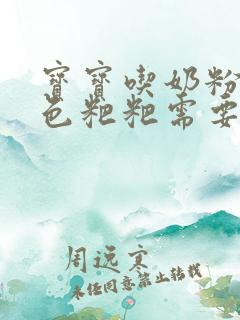 寶寶喫奶粉
色粑粑需要
周远寒
未经同意禁止转载